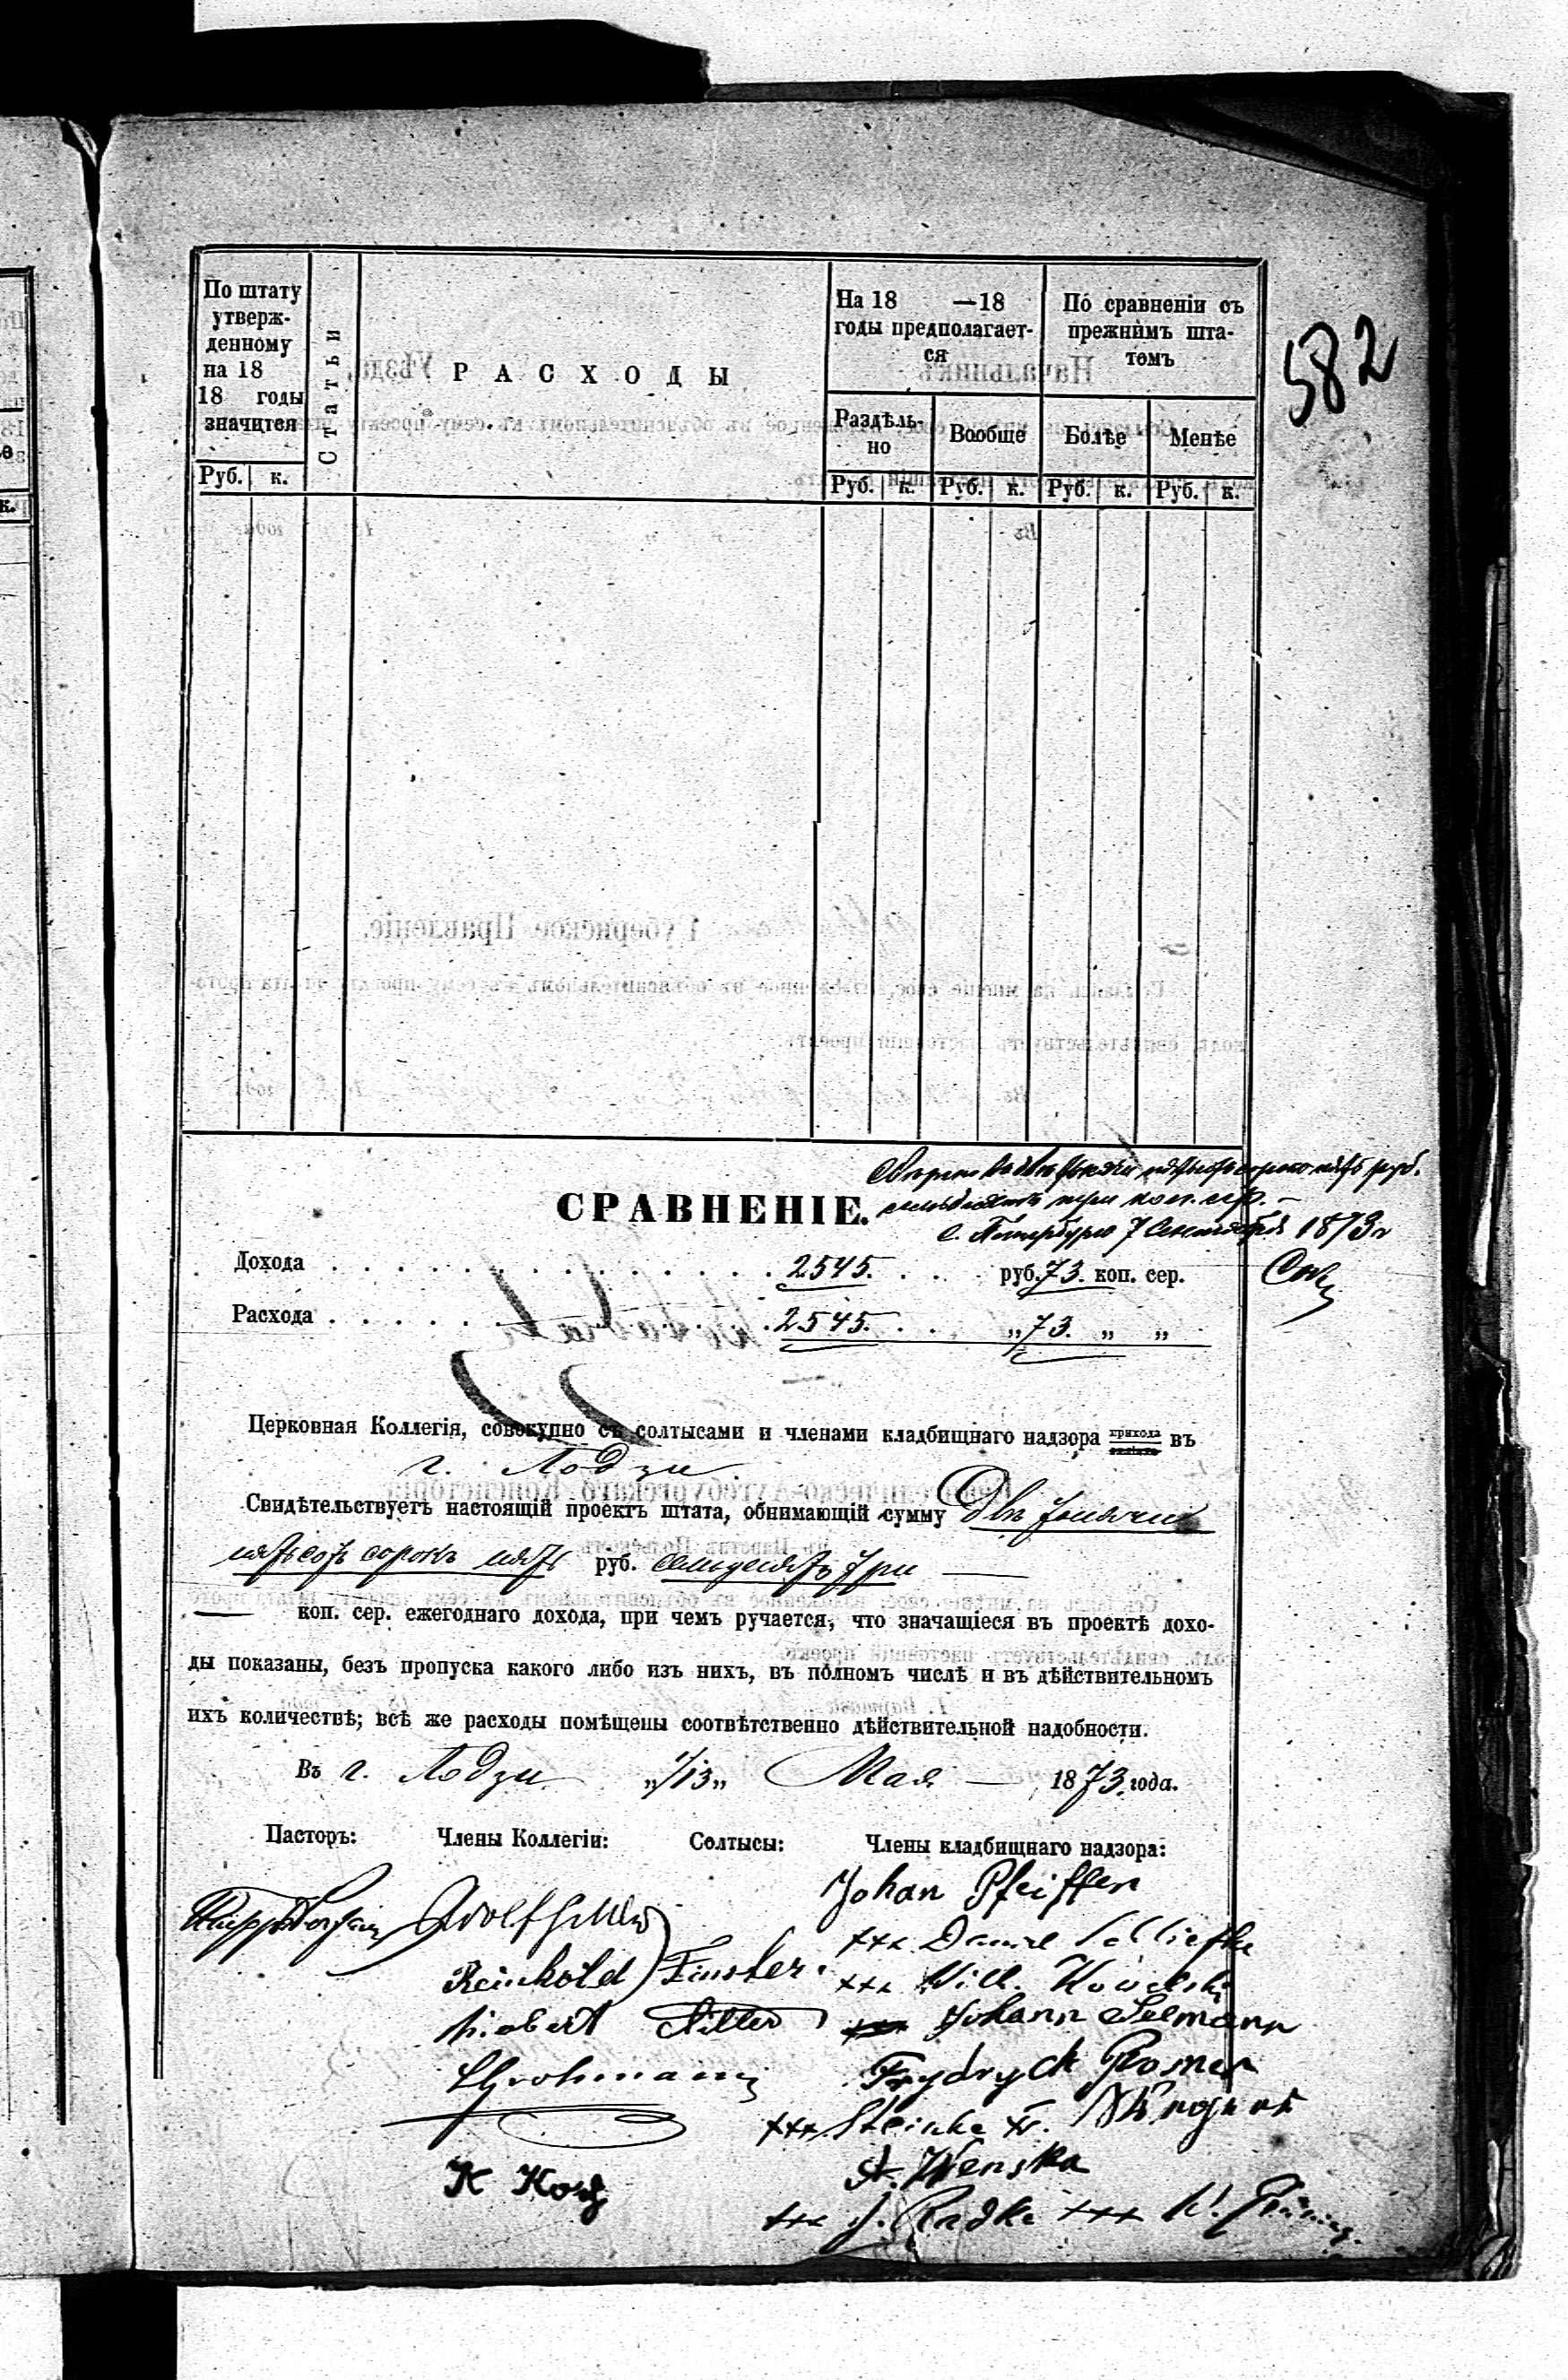 582
По штату
утверж-
денному
на 18
18 годы
значится
Руб. к.
Статьи
РАСХОДЫ
На 18 —18
годы предполагает-
ся
Раздѣль-
но
Вообще
Руб. к. Руб. к.
По сравненіи съ
прежнимъ шта-
томъ
Болѣе Менѣе
Руб. к. Руб. к.
пятьсотъ сорокъ пять руб.
семьдесятъ три коп. сер. —
С. Петербургъ 7 Сентября 1873 г
СРАВНЕНІЕ.
Дохода . . . 2545. . . руб. 73. коп. сер.
Расхода . . . 2545. . . „ 73. „ „
Церковная Коллегія, совокупно съ солтысами и членами кладбищнаго надзора прихода въ
г. Лодзи.
Свидѣтельствуетъ настоящій проектъ штата, обнимающій сумму Двѣ тысячи
пятьсотъ сорокъ пять руб. семьдесятъ три —
— коп. сер. ежегоднаго дохода, при чемъ ручается, что значащіеся въ проектѣ дохо-
ды показаны, безъ пропуска какого либо изъ нихъ, въ полномъ числѣ и въ дѣйствительномъ
ихъ количествѣ; всѣ же расходы помѣщены соотвѣтственно дѣйствительной надобности.
Въ г. Лодзи „1/13„ Мая — 1873. года.
Пасторъ: Члены Коллегіи: Солтысы: Члены кладбищнаго надзора:
Johan Pfeiffer
xxx Daniel
Reinhold Finster.
xxx Will. Kowalski
Johann Selmann
Frydrych
LGrohmann
xxx Steinke Fr.
A. Wenska
K
xxx J. Radke xxx W.